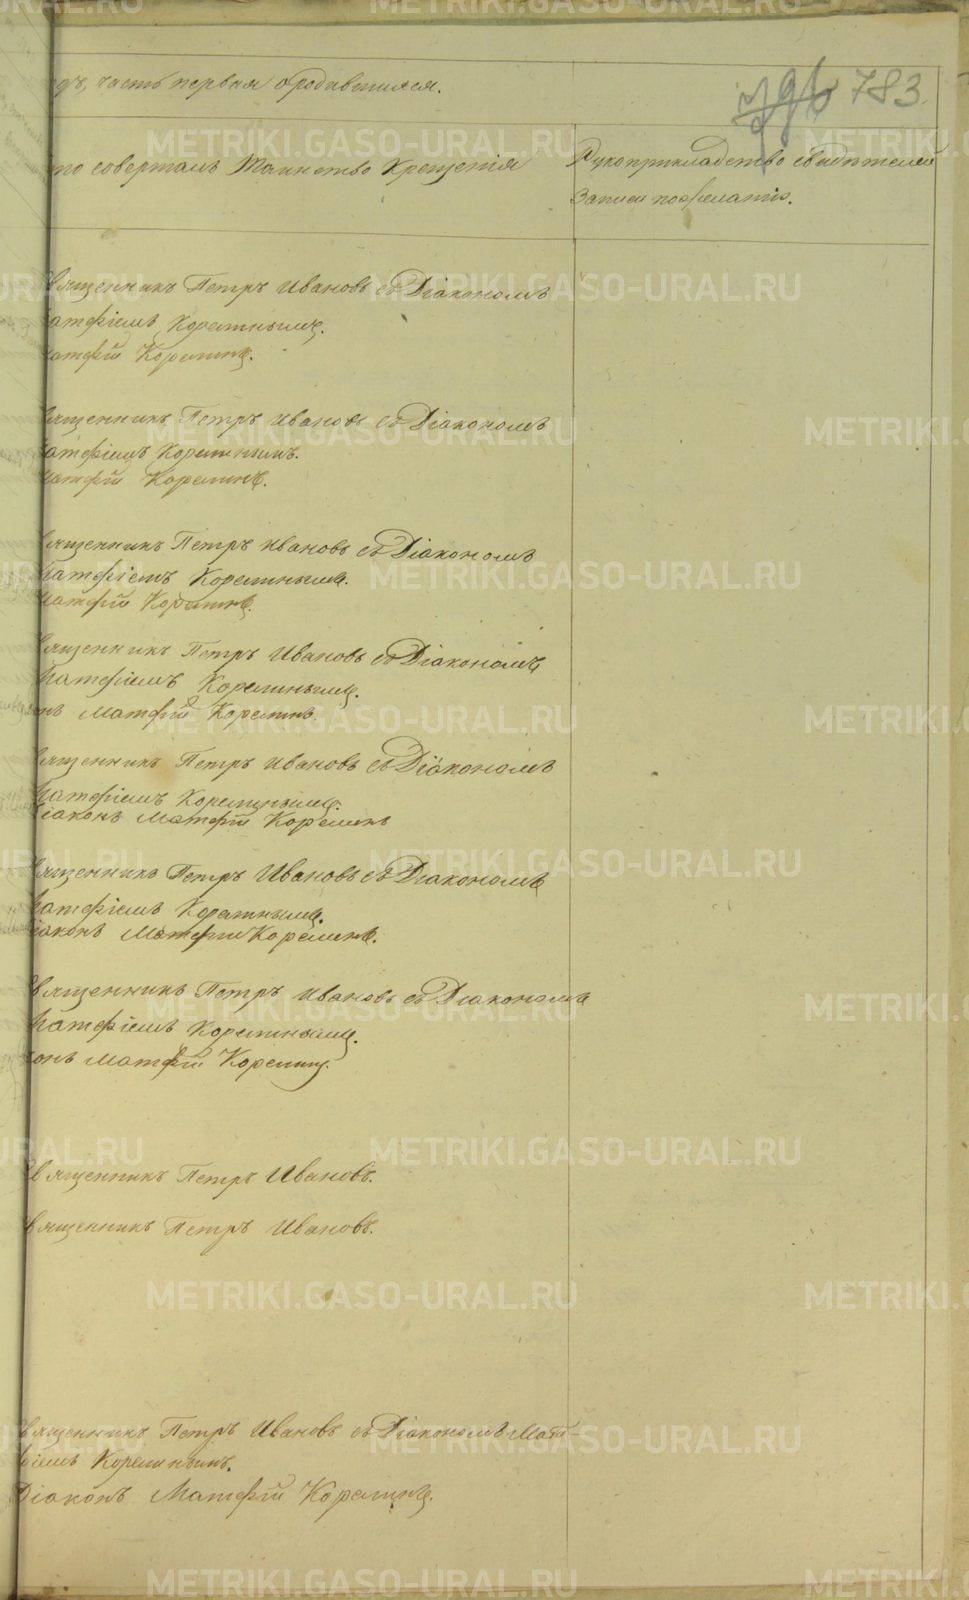 783.
одъ, часть первая о родившихся.
то совершалъ Таинство Крещенія
Рукоприкладство свидѣтелей
записи по желанію.
вященникъ Петръ Ивановъ съ Діакономъ
атфіемъ Корелинымъ.
атфій Корелинъ.
вященникъ Петръ Ивановъ съ Діакономъ
атфіемъ Корелинымъ.
атфій Корелинъ.
вященникъ Петръ Ивановъ съ Діакономъ
атфіемъ Корелинымъ.
атфій Корелинъ.
вященникъ Петръ Ивановъ съ Діакономъ
атфіемъ Корелинымъ.
нъ Матфій Корелинъ.
вященникъ Петръ Ивановъ съ Діакономъ
атфіемъ Корелинымъ.
іаконъ Матфій Корелинъ
вященникъ Петръ Ивановъ съ Діакономъ
атфіемъ Корелинымъ.
іаконъ Матфій Корелинъ.
вященникъ Петръ Ивановъ съ Діакономъ
атфіемъ Корелинымъ.
онъ Матфій Корелинъ.
вященникъ Петръ Ивановъ.
вященникъ Петръ Ивановъ.
вященникъ Петръ Ивановъ съ Діакономъ Мат-
фіемъ Корелинымъ.
Діаконъ Матфій Корелинъ.
METRIKI.GASO-URAL.RU